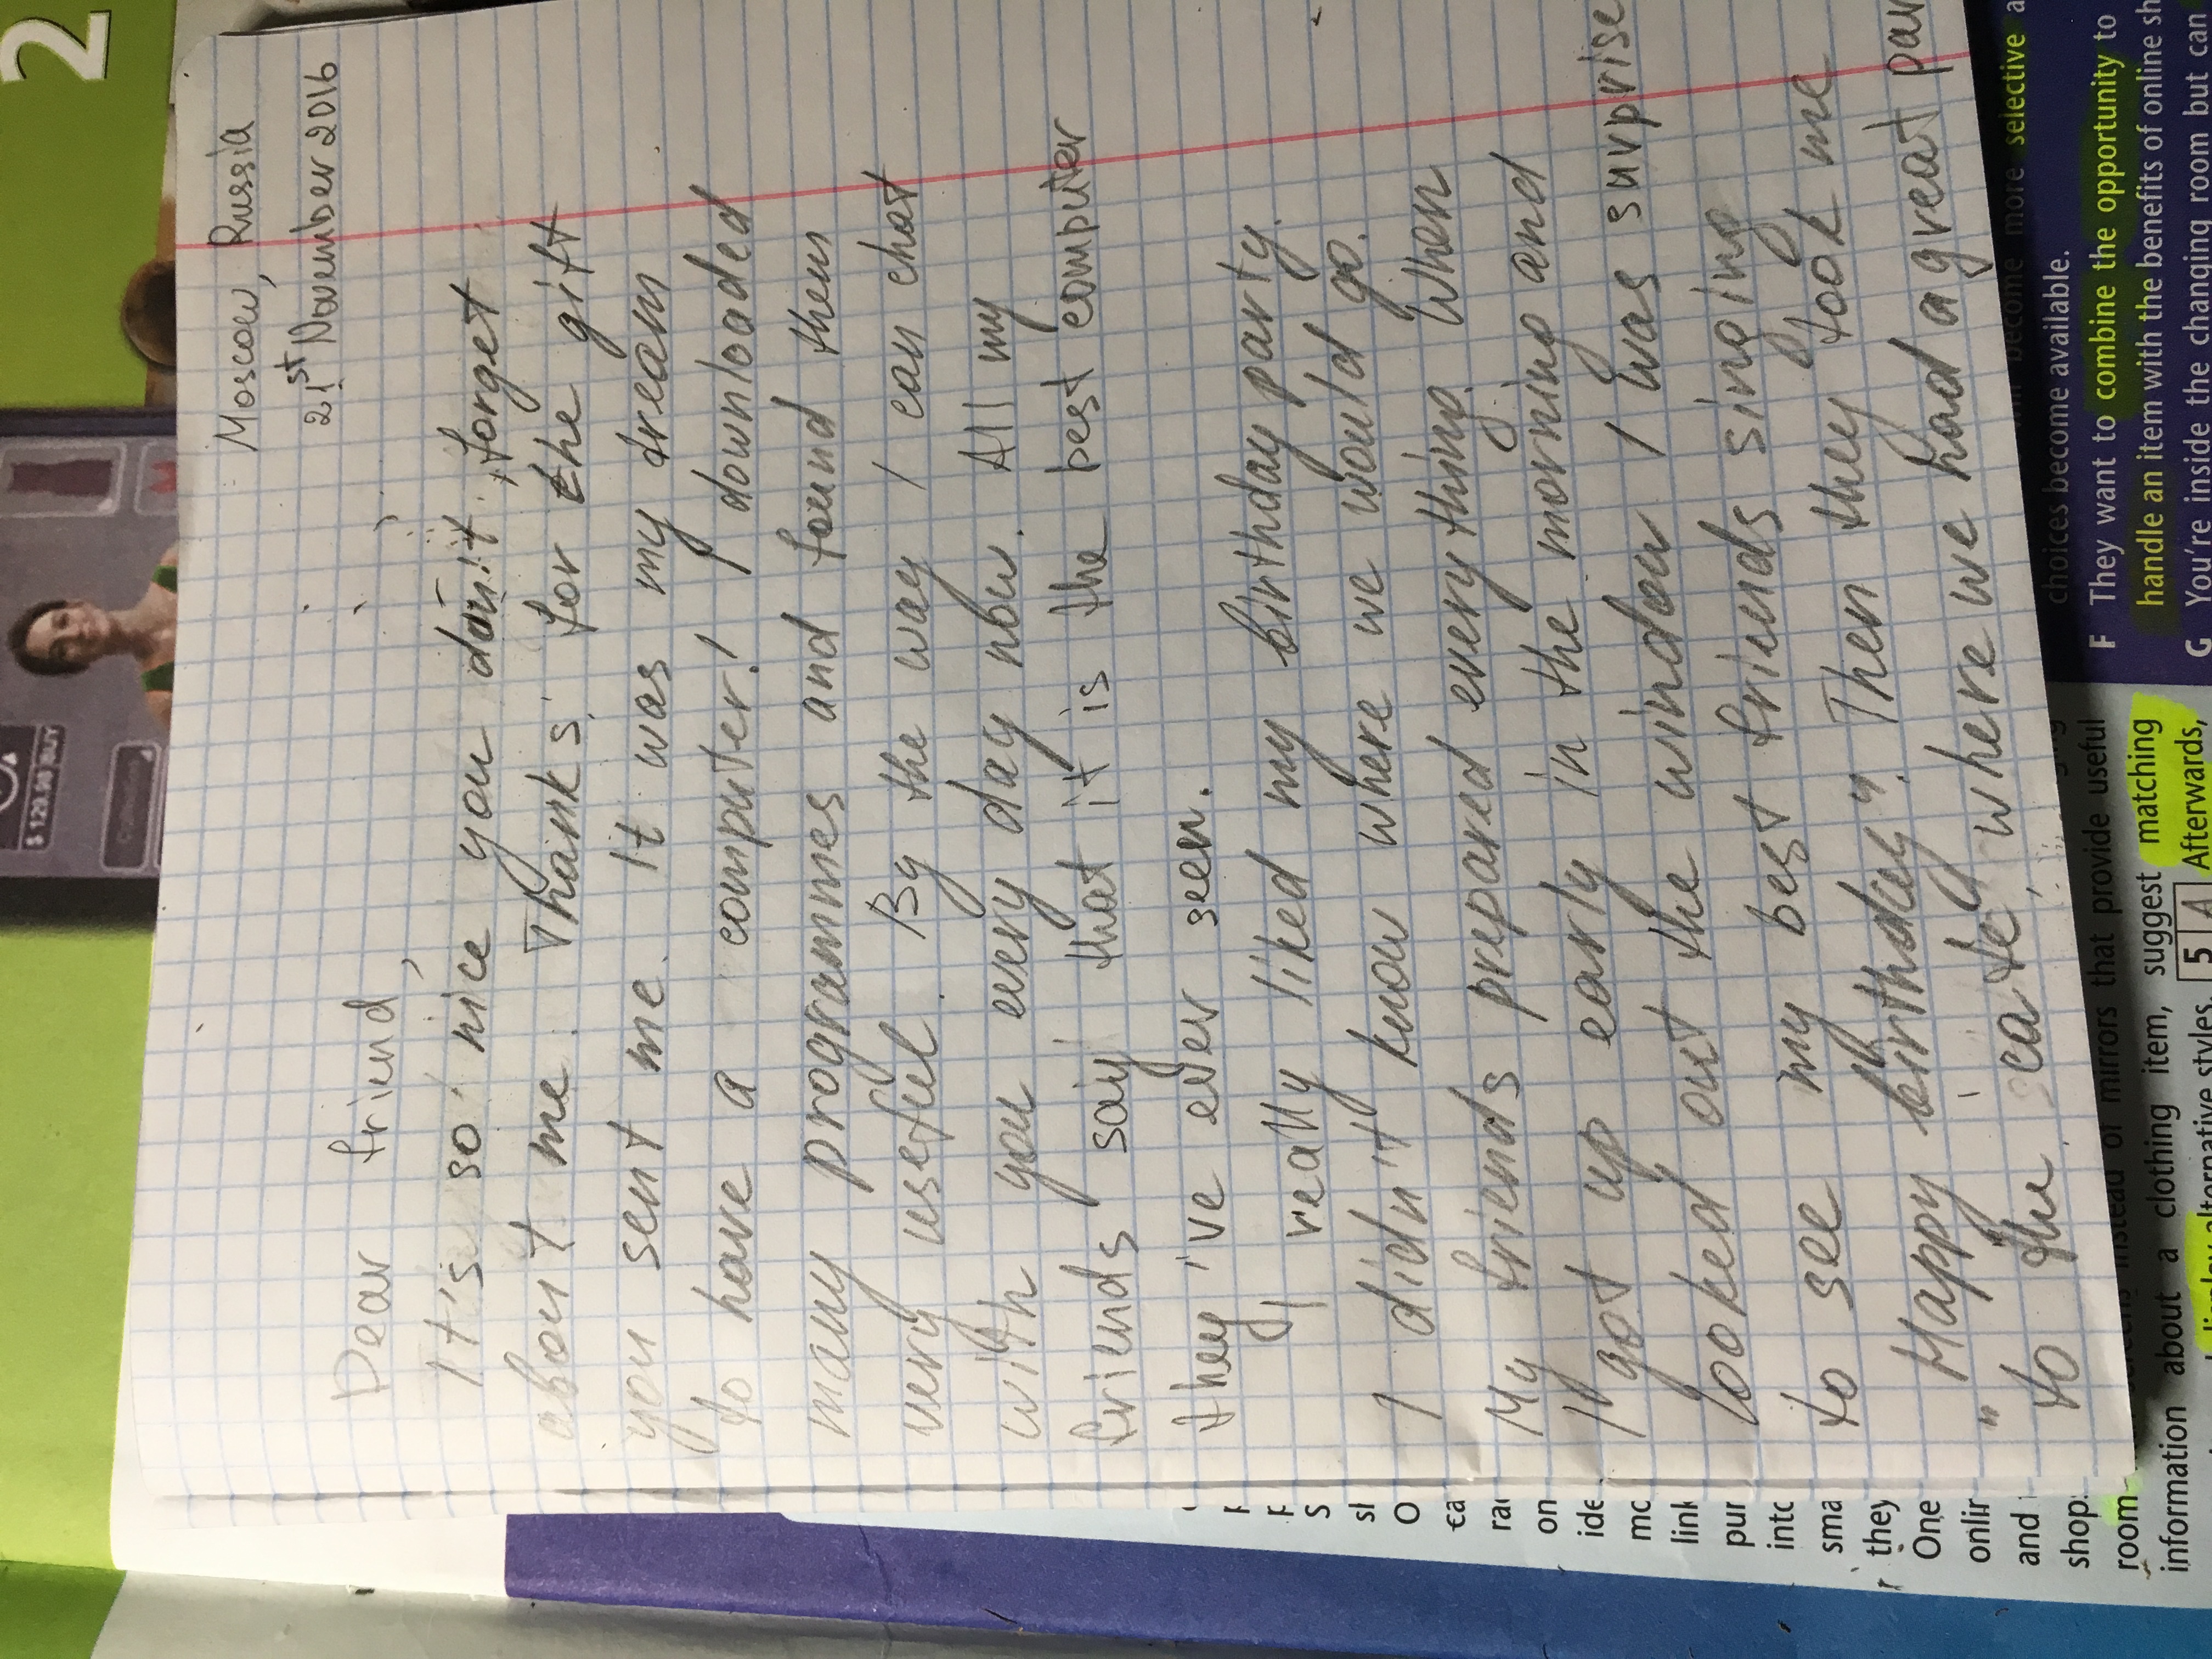 Moscow, Russia
21st November 2016
Dear friend,
It's so nice you don't forget
about me. Thanks for the gift
you sent me. It was my dream
to have a computer! I downloaded
many programmes and found them
very useful. By the way I can chat
with you every day now. All my
friends say that it is the best computer
they've ever seen.
I really liked my birthday party.
I didn't know where we would go.
My friends prepared everything. When
I got up early in the morning and
looked out the window I was surprise
to see my best friends singing
"Happy birthday". Then they took me
to the "cafe", where we had a great par
2
$ 129.90 BUY
will become more selective a
choices become available.
F They want to combine the opportunity to
handle an item with the benefits of online sh
G You're inside the changing room but can
screens instead of mirrors that provide useful
information about a clothing item, suggest matching
alternative styles. 5 A Afterwards,
S
sl
O
ca
ra
on
ide
mo
link
pur
into
sma
they
One
onlin
and
shop
room